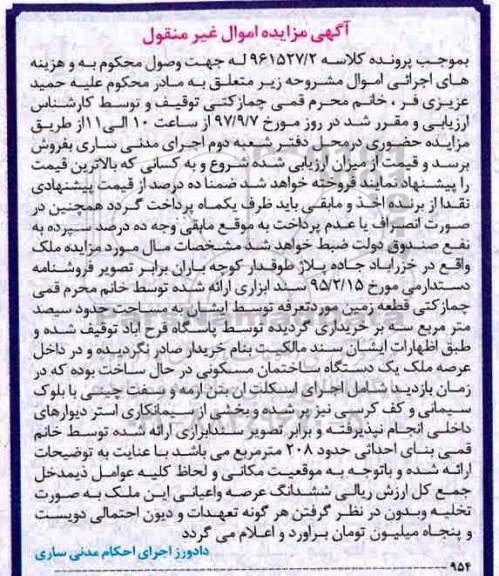 آگهی مزایده اموال غیر منقول
بموجب پرونده کلاسه ۹۶۱۵۲۷/۲ له جهت وصول محکوم به و هزینه
های اجرائی اموال مشروحه زیر متعلق به مادر محکوم علیه حمید
عزیزی فر، خانم محرم قمی چمازکتی توقیف و توسط کارشناس
ارزیابی و مقرر شد در روز مورخ ۹۷/۹/۷ از ساعت ۱۰ الی ۱۱از طریق
مزایده حضوری درمحل دفتر شعبه دوم اجرای مدنی ساری بفروش
برسد و قیمت از میزان ارزیابی شده شروع و به کسانی که بالاترین قیمت
را پیشنهاد نمایند فروخته خواهد شد ضمنا ده درصد از قیمت پیشنهادی
نقدا از برنده اخذ و مابقی باید ظرف یکماه پرداخت گردد همچنین در
صورت انصراف یا عدم پرداخت به موقع مابقی وجه ده درصد سپرده به
نفع صندوق دولت ضبط خواهد شد مشخصات مال مورد مزایده ملک
واقع در خزرآباد جاده پلاژ طوقدار کوچه باران برابر تصویر فروشنامه
دستدارمی مورخ ۹۵/۲/۱۵ سند ابزاری ارائه شده توسط خانم محرم قمی
چمازکتی قطعه زمین موردتعرفه توسط ایشان به مساحت حدود سیصد
متر مربع سه بر خریداری گردیده توسط پاسگاه فرح آباد توقیف شده و
طبق اظهارات ایشان سند مالکیت بنام خریدار صادر نگردیده و در داخل
عرصه ملک یک دستگاه ساختمان مسکونی در حال ساخت بوده که در
زمان بازدید شامل اجرای اسکلت آن بتن ارمه و سفت چینی با بلوک
سیمانی و کف کرسی نیز پر شده و بخشی از سیمانکاری استر دیوارهای
داخلی انجام نپذیرفته و برابر تصویر سندابزاری ارائه شده توسط خانم
قمی بنای احداثی حدود ۲۰۸ مترمربع می باشد با عنایت به توضیحات
ارائه شده و باتوجه به موقعیت مکانی و لحاظ کلیه عوامل ذیمدخل
جمع کل ارزش ریالی ششدانگ عرصه واعیانی این ملک به صورت
تخلیه وبدون در نظر گرفتن هر گونه تعهدات و دیون احتمالی دویست
و پنجاه میلیون تومان براورد و اعلام می گردد
دادورز اجرای احکام مدنی ساری
۹۵۴